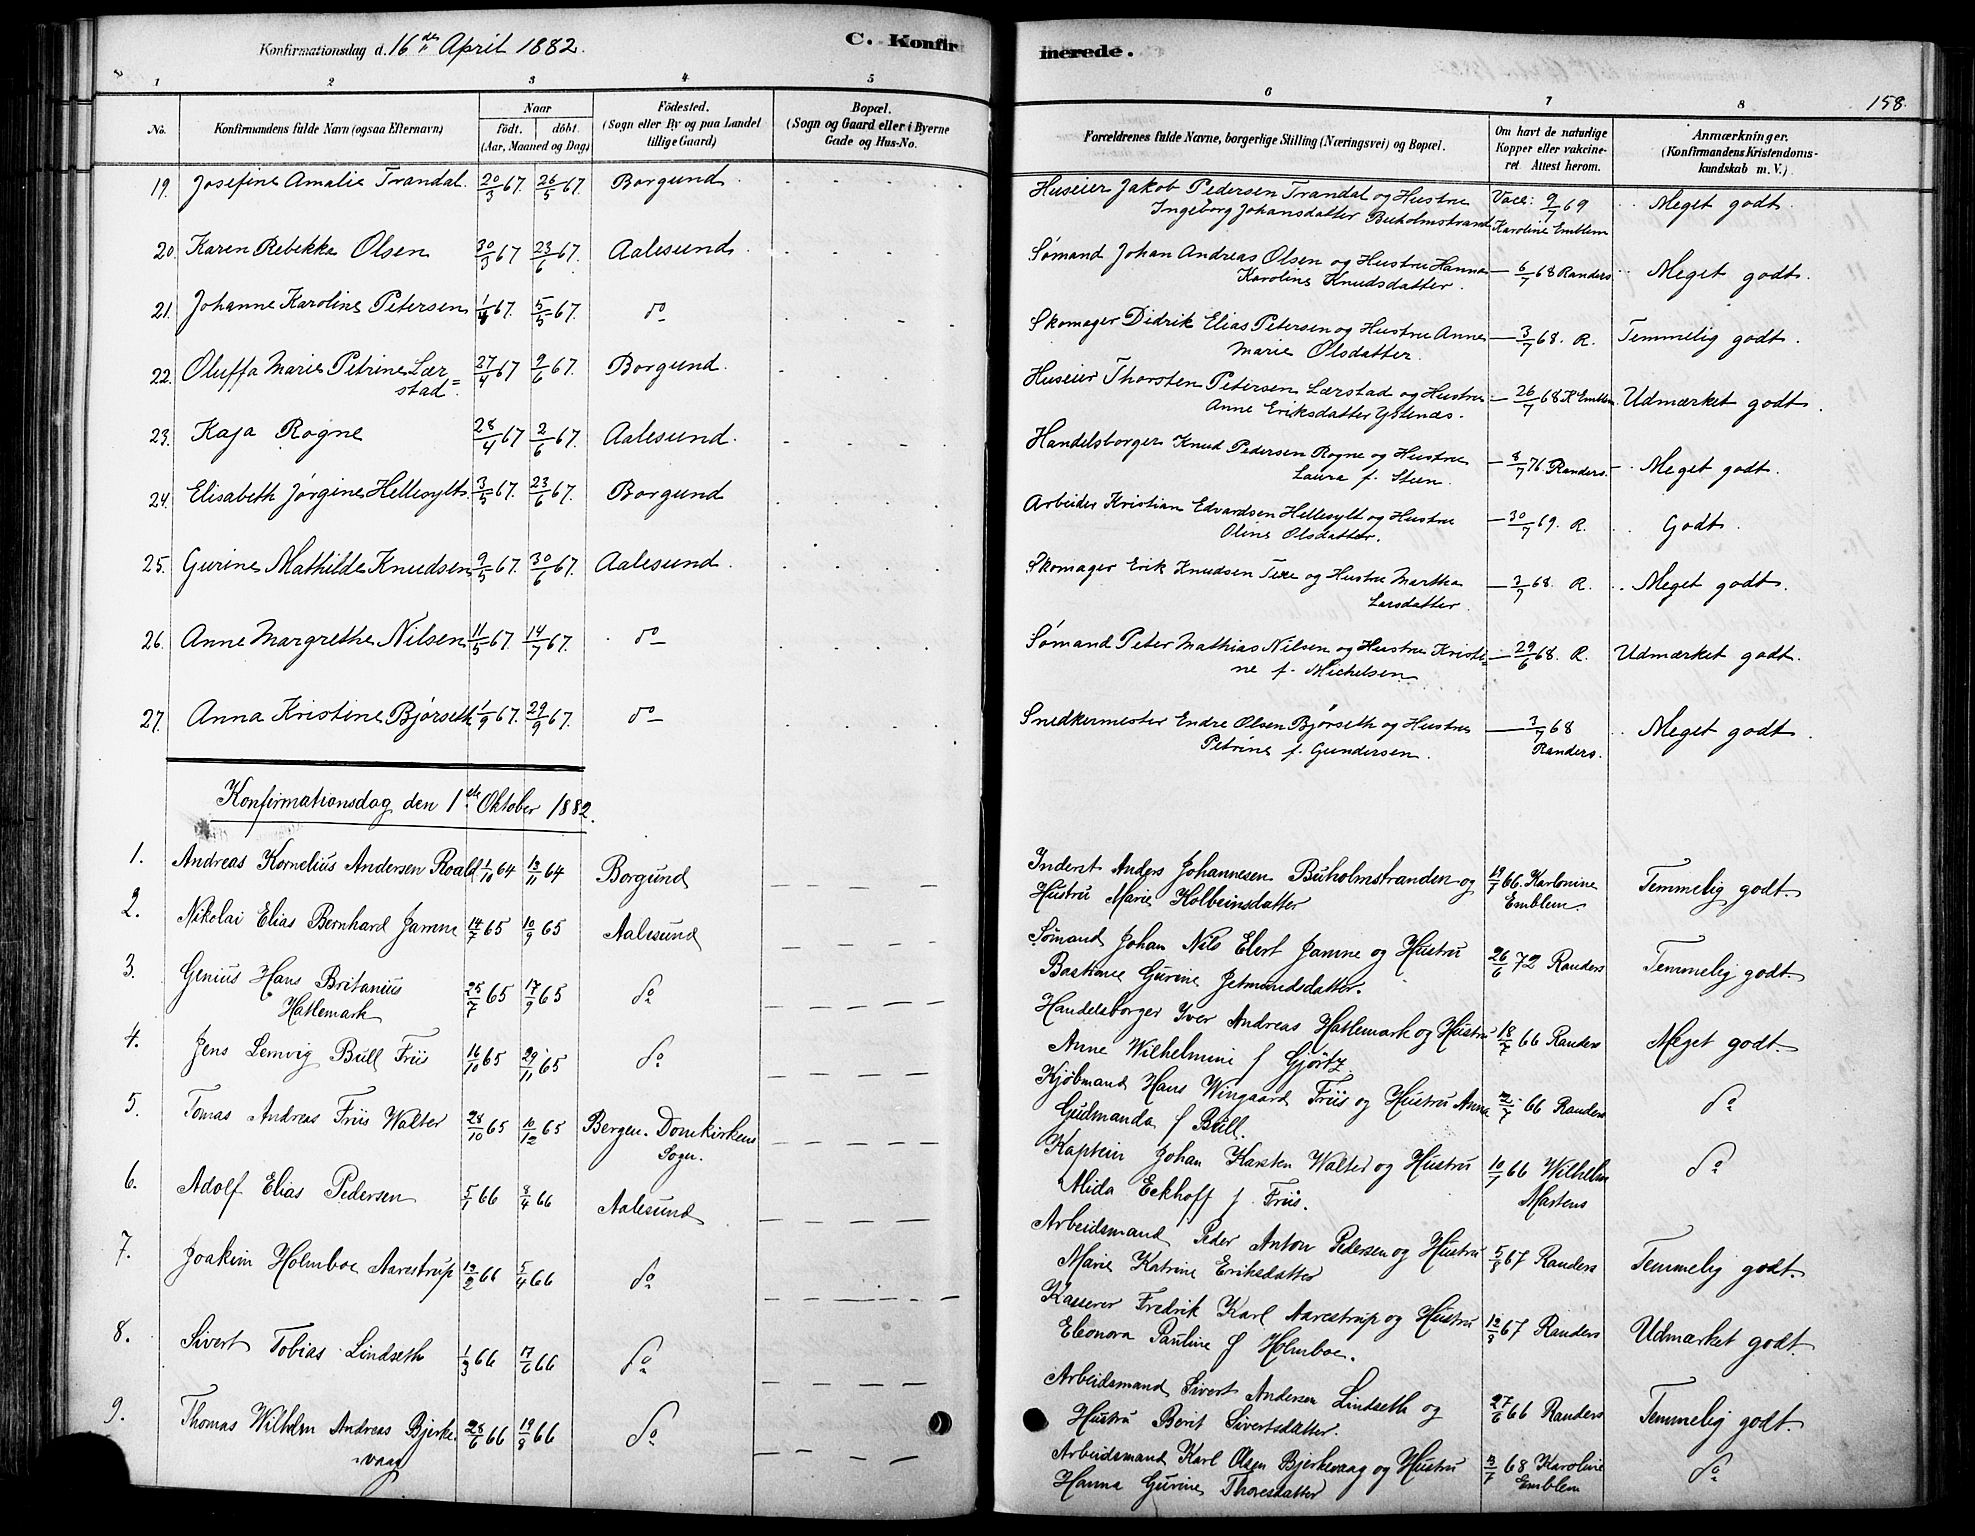 Konfirmationsdag d. 16de April 1882.
C. Konfirmerede.
158.
1 2 3 4 5 6 7 8
No.
Konfirmandens fulde Navn (ogsaa Efternavn)
Naar
født. døbt.
(Aar, Maaned og Dag)
Födested.
(Sogn eller By og paa Landet
tillige Gaard)
Bopæl.
(Sogn og Gaard eller i Byerne
Gade og Hus-No.
Forældrenes fulde Navne, borgerlige Stilling (Næringsvei) og Bopæl.
Om havt de naturlige
Kopper eller vakcine-
ret. Attest herom.
Anmærkninger.
(Konfirmandens Kristendoms-
kundskab m. V.)
19. Josefine Amalie Trandal. 20/3 67. 26/5 67. Borgund Huseier Jakob Pedersen Trandal og Hustru Vacc: 9/7 69 Meget godt
Ingeborg Johansdatter Buholmstrand Karoline Emblem
20. Karen Rebekke Olsen 30/3 67 23/6 67. Aalesund Sømand Johan Andreas Olsen og Hustru Hanna — 6/7 68 Randers Meget godt.
Karoline Knudsdatter.
21. Johanne Karoline Petersen 1/4 67. 5/5 67. do Skomager Didrik Elias Petersen og Hustru Anne — 3/7 68. R. Temmelig godt.
Marie Olsdatter.
22. Oluffa Marie Petrine Lær= 27/4 67 2/6 67. Borgund. Huseier Thorsten Petersen Lærstad og Hustru — 26/7 68 K Emblem Udmærket godt.
stad Anne Eriksdatter Ystenæs.
23. Kaja Rogne 28/4 67 2/6 67. Aalesund. Handelsborger Knud Pedersen Rogne og Hustru — 8/7 76. Randers. Meget godt.
Laura f. Steen.
24. Elisabeth Jørgine Hellesylt 3/5 67. 23/6 67. Borgund Arbeider Kristian Edvardsen Hellesylt og Hustru — 30/7 69. R. Godt.
Oline Olsdatter.
25. Gurine Mathilde Knudsen 9/5 67. 30/6 67. Aalesund. Skomager Erik Knudsen og Hustru Martha — 3/7 68. R. Meget godt.
Larsdatter.
26. Anne Margrethe Nilsen 11/5 67 14/7 67. do Sømand Peter Mathias Nilsen og Hustru Kristi= — 29/6 68. R. Udmærket godt.
ne f. Michelsen
27. Anna Kristine Bjørseth 1/9 67. 29/9 67. do Snedkermester Endre Olsen Bjørseth og Hustru — 3/7 68 Meget godt.
Petrine f. Gundersen. Randers.
Konfirmationsdag den 1ste Oktober 1882.
1. Andreas Kornelius Andersen Roald 1/10 64 13/11 64 Borgund Inderst Anders Johannesen Buholmstranden og 19/7 66. Karlonine Temmelig godt.
Hustru Marie Kolbeinsdatter Emblem.
2. Nikolai Elias Bernhard Jamne 14/7 65 10/9 65 Aalesund Sømand Johan Nils Elert Jamne og Hustru 26/6 72 Randers Temmelig godt
Gurine Jetmundsdatter.
3. Genius Hans Britanius 25/7 65 17/9 65 do Handelsborger Iver Andreas Hatlemark og Hustru 18/7 66 Randers Meget godt.
Hatlemark Anne Wilhelmine f Gjörtz.
4. Jens Lemvig Bull Friis 16/10 65 29/11 65 do Kjøbmand Hans Wingaard Friis og Hustru Anna 66 Randers do
Gudmanda f Bull.
5. Tomas Andreas Friis Walter 28/10 65 10/12 65 Bergen. Domkirkens Kaptein Johan Karsten Walter og Hustru 10/7 66 Wilhelm do
Sogn. Alida Eckhoff f. Friis. Martens
6. Adolf Elias Pedersen 5/1 66 8/4 66 Aalesund Arbeidsmand Peder Anton Pedersen og Hustru 5/8 67 Randers Temmelig godt.
Marie Katrine Eriksdatter
7. Joakim Holmboe Aarestrup 12/2 66 5/4 66 do Kasserer Fredrik Karl Aarestrup og Hustru 12/8 67 Randers Udmærket godt.
Eleonora Pauline f Holmboe.
8. Sivert Tobias Lindseth 1/3 66 17/6 66 do Arbeidsmand Sivert Andersen Lindseth og 27/6 66 Randers Temmelig godt.
Hustru Berit Sivertsdatter.
9. Thomas Wilhelm Andreas Bjerke- 28/6 66 19/8 66 do Arbeidsmand Karl Olsen Bjerkevaag og Hustru 3/7 68 Karoline do
vaag Hanna Gurine Thoresdatter Emblem